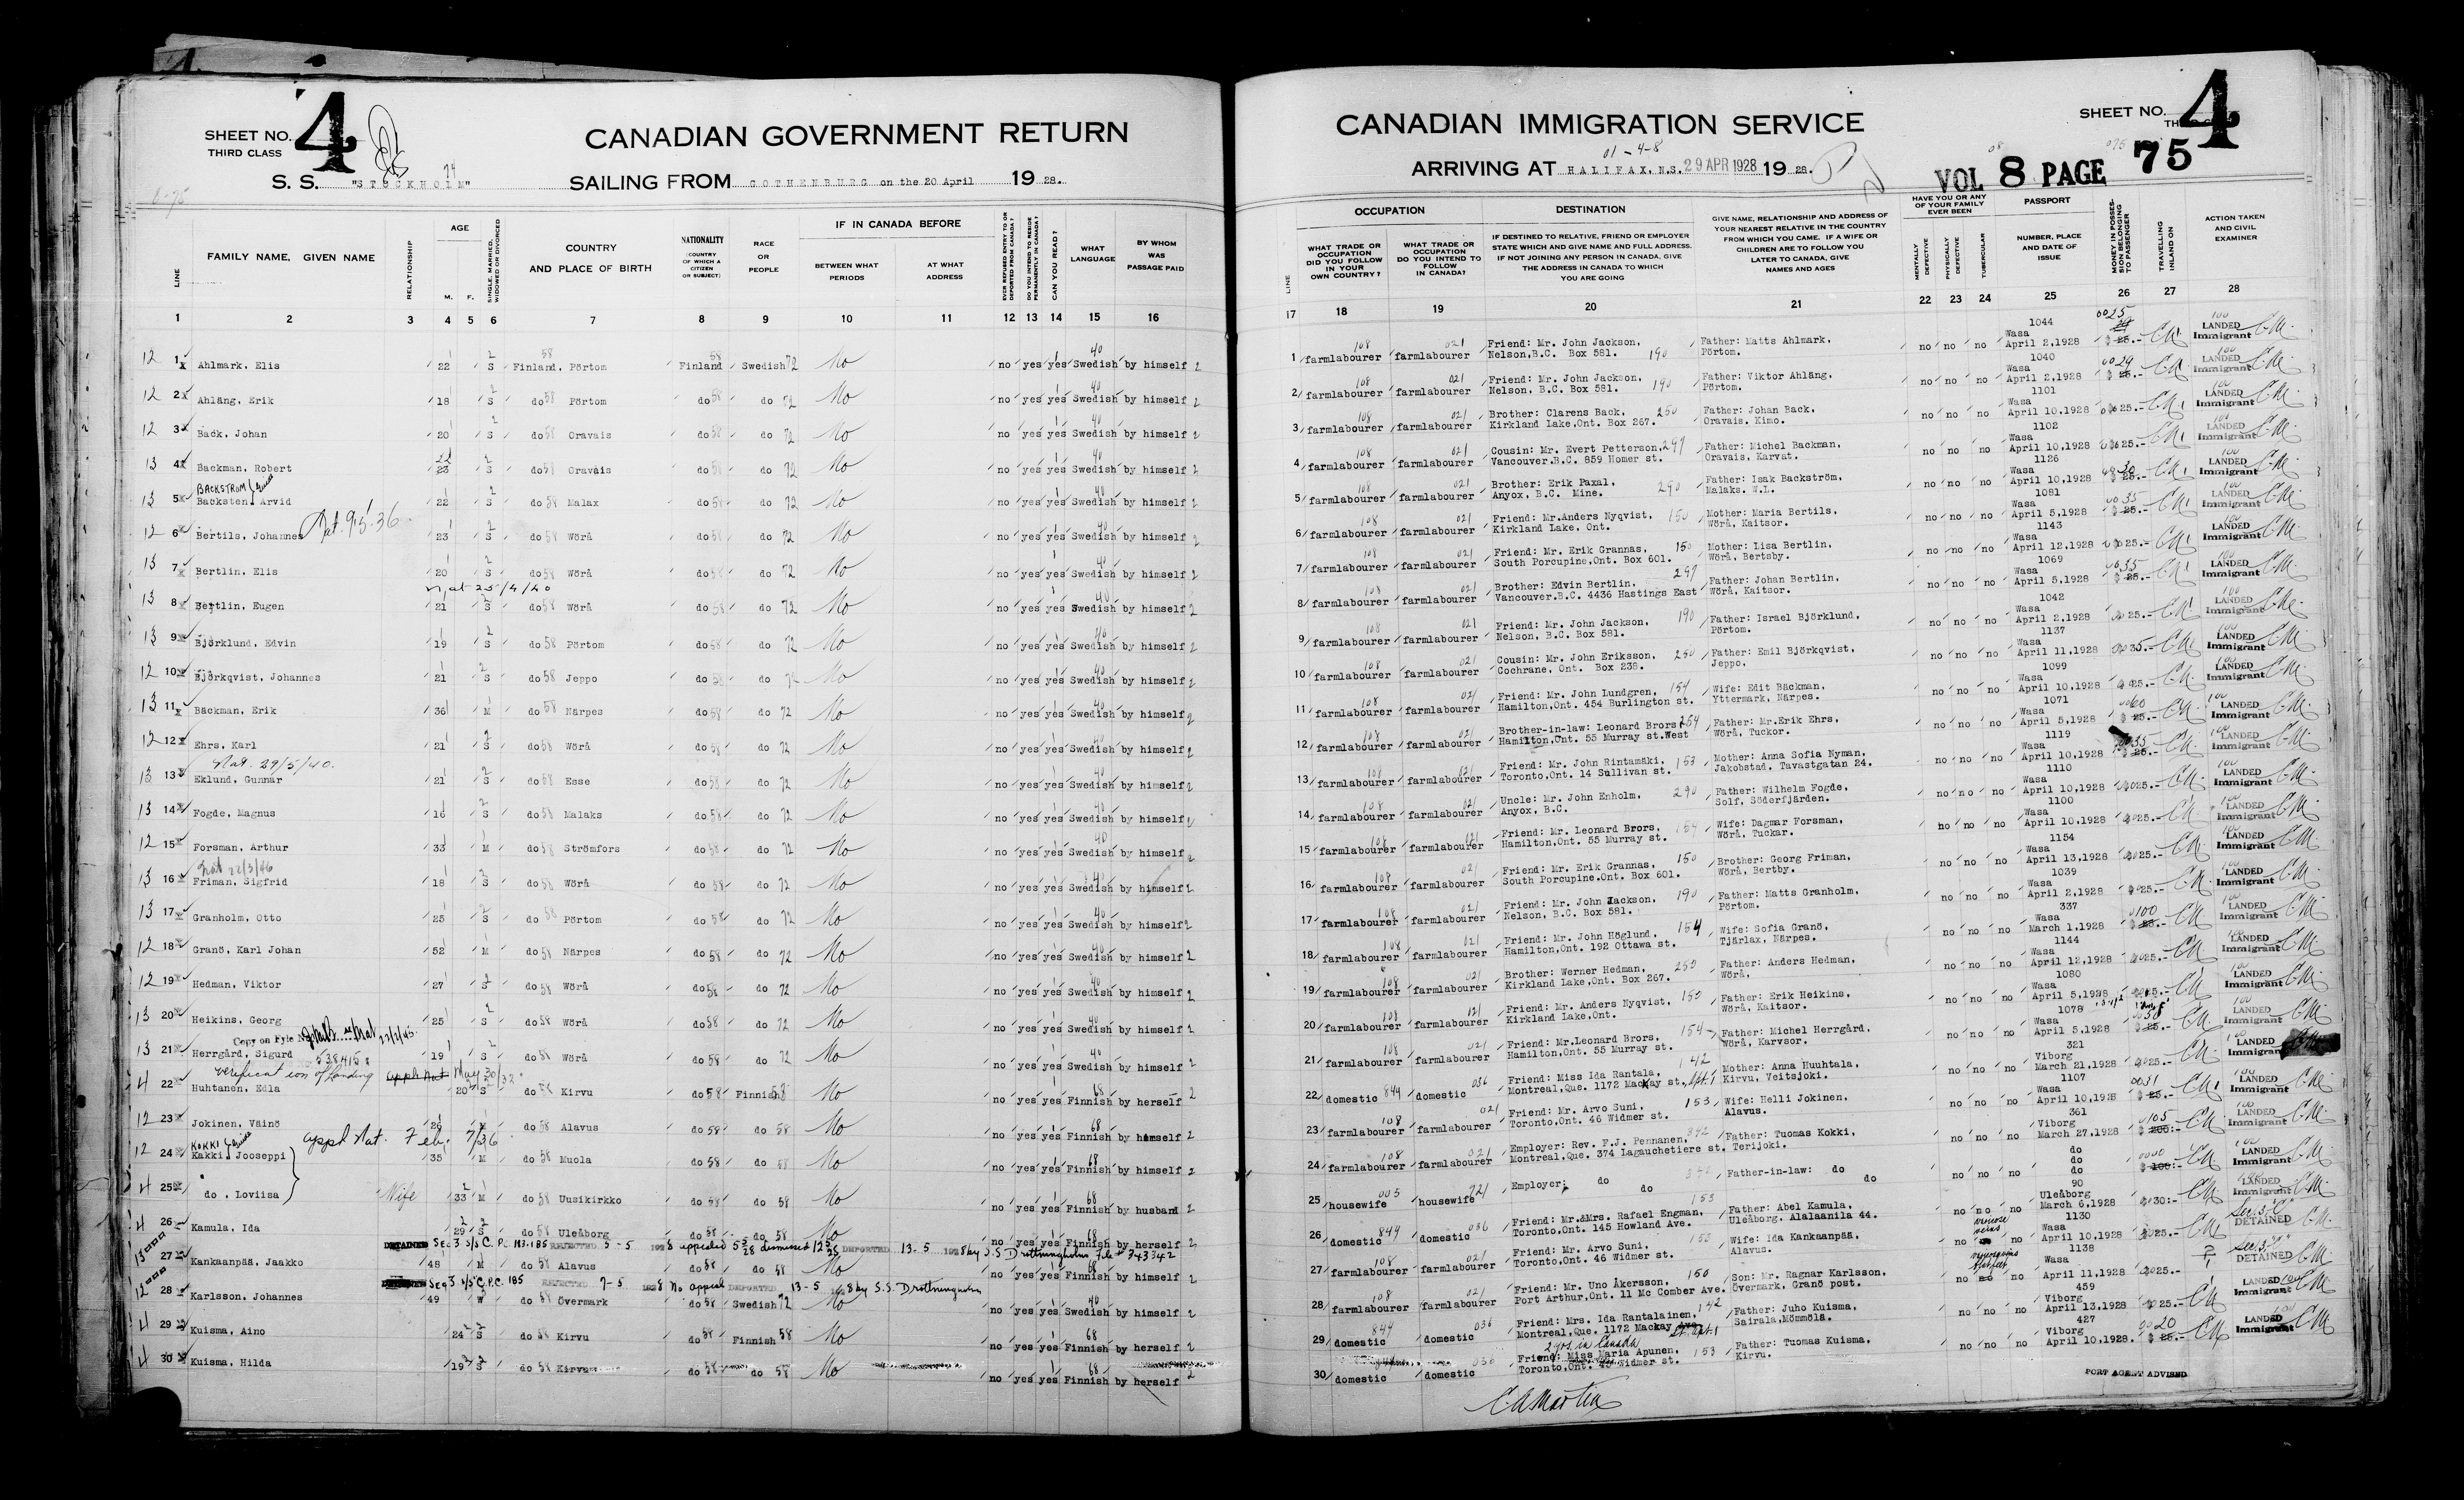 SHEET NO. 4
THIRD CLASS
CANADIAN GOVERNMENT RETURN
S. S. "STOCKHOLM" SAILING FROM GOTHENBURG on the 20 April 19 28.
LINE FAMILY NAME, GIVEN NAME RELATIONSHIP AGE M. F. SINGLE MARRIED, WIDOWED OR DIVORCED COUNTRY AND PLACE OF BIRTH NATIONALITY (COUNTRY OF WHICH A CITIZEN OR SUBJECT) RACE OR PEOPLE IF IN CANADA BEFORE BETWEEN WHAT PERIODS AT WHAT ADDRESS EVER REFUSED ENTRY TO OR DEPORTED FROM CANADA? DO YOU INTEND TO RESIDE PERMANENTLY IN CANADA? CAN YOU READ? WHAT LANGUAGE BY WHOM WAS PASSAGE PAID
1 2 3 4 5 6 7 8 9 10 11 12 13 14 15 16
12 1 Ahlmark, Elis 22 S Finland, Pörtom Finland Swedish 72 No no yes yes Swedish by himself
12 2 Ahläng, Erik 18 S do 58 Pörtom do 58 do 72 No no yes yes Swedish by himself
12 3 Back, Johan 20 S do 58 Oravais do 58 do 72 No no yes yes Swedish by himself
13 4 Backman, Robert 23 S do 58 Oravais do 58 do 72 No no yes yes Swedish by himself
BACKSTROM
13 5 Backsten, Arvid 22 S do 58 Malax do 58 do 72 No no yes yes Swedish by himself
12 6 Bertils, Johannes Nat. 9.5.36 23 S do 58 Wörå do 58 do 72 No no yes yes Swedish by himself
13 7 Bertlin, Elis 20 S do 58 Wörå do 58 do 72 No no yes yes Swedish by himself
nat 25/4/40
13 8 Bertlin, Eugen 21 S do 58 Wörå do 58 do 72 No no yes yes Swedish by himself
13 9 Björklund, Edvin 19 S do 58 Pörtom do 58 do 72 No no yes yes Swedish by himself
12 10 Björkqvist, Johannes 21 S do 58 Jeppo do 58 do 72 No no yes yes Swedish by himself
13 11 Bäckman, Erik 36 M do 58 Närpes do 58 do 72 No no yes yes Swedish by himself
12 12 Ehrs, Karl 21 S do 58 Wörå do 58 do 72 No no yes yes Swedish by himself
Nat. 29/5/40.
13 13 Eklund, Gunnar 21 S do 58 Esse do 58 do 72 No no yes yes Swedish by himself
13 14 Fogde, Magnus 16 S do 58 Malaks do 58 do 72 No no yes yes Swedish by himself
12 15 Forsman, Arthur 33 M do 58 Strömfors do 58 do 72 No no yes yes Swedish by himself
Nat 22/3/46
13 16 Friman, Sigfrid 18 S do 58 Wörå do 58 do 72 No no yes yes Swedish by himself
13 17 Granholm, Otto 25 S do 58 Pörtom do 58 do 72 No no yes yes Swedish by himself
12 18 Granö, Karl Johan 52 M do 58 Närpes do 58 do 72 No no yes yes Swedish by himself
12 19 Hedman, Viktor 27 S do 58 Wörå do 58 do 72 No no yes yes Swedish by himself
13 20 Heikins, Georg 25 S do 58 Wörå do 58 do 72 No no yes yes Swedish by himself
Copy on Fyle
13 21 Herrgård, Sigurd 538415 19 S do 58 Wörå do 58 do 72 No no yes yes Swedish by himself
verification of Landing appl. Nat May 30/32
4 22 Huhtanen, Edla 20 S do 58 Kirvu do 58 Finnish 58 No no yes yes Finnish by herself
12 23 Jokinen, Väinö 26 M do 58 Alavus do 58 do 58 No no yes yes Finnish by himself
KOKKI appl Nat. Feb. 7/36
12 24 Kakki, Jooseppi 35 M do 58 Muola do 58 do 58 No no yes yes Finnish by himself
4 25 do , Loviisa Wife 33 M do 58 Uusikirkko do 58 do 58 No no yes yes Finnish by husband
4 26 Kamula, Ida 29 S do 58 Uleåborg do 58 do 58 No no yes yes Finnish by herself
DETAINED Sec 3 S/S C. P.C. 183.185 REJECTED 5-5 1928 appealed 5/5 28 dismissed 12/5 28 DEPORTED 13-5 1928 by S.S Drottningholm File # 343342
13 27 Kankaanpää, Jaakko 48 M do 58 Alavus do 58 do 58 No no yes yes Finnish by himself
DETAINED Sec 3 S/S C. P.C. 185 REJECTED 7-5 1928 No appeal DEPORTED 13-5 1928 by S.S. Drottningholm
12 28 Karlsson, Johannes 49 W do 58 Övermark do 58 Swedish 72 No no yes yes Swedish by himself
4 29 Kuisma, Aino 24 S do 58 Kirvu do 58 Finnish 58 No no yes yes Finnish by herself
4 30 Kuisma, Hilda 19 S do 58 Kirvu do 58 do 58 No no yes yes Finnish by herself
CANADIAN IMMIGRATION SERVICE
SHEET NO. 4
THIRD CLASS
01-4-8
ARRIVING AT HALIFAX, N.S. 29 APR 1928 19 28.
VOL 8 PAGE 75
LINE OCCUPATION WHAT TRADE OR OCCUPATION DID YOU FOLLOW IN YOUR OWN COUNTRY? WHAT TRADE OR OCCUPATION DO YOU INTEND TO FOLLOW IN CANADA? DESTINATION IF DESTINED TO RELATIVE, FRIEND OR EMPLOYER STATE WHICH AND GIVE NAME AND FULL ADDRESS. IF NOT JOINING ANY PERSON IN CANADA, GIVE THE ADDRESS IN CANADA TO WHICH YOU ARE GOING GIVE NAME, RELATIONSHIP AND ADDRESS OF YOUR NEAREST RELATIVE IN THE COUNTRY FROM WHICH YOU CAME. IF A WIFE OR CHILDREN ARE TO FOLLOW YOU LATER TO CANADA, GIVE NAMES AND AGES HAVE YOU OR ANY OF YOUR FAMILY EVER BEEN MENTALLY DEFECTIVE PHYSICALLY DEFECTIVE TUBERCULAR PASSPORT NUMBER, PLACE AND DATE OF ISSUE MONEY IN POSSESSION BELONGING TO PASSENGER TRAVELLING INLAND ON ACTION TAKEN AND CIVIL EXAMINER
17 18 19 20 21 22 23 24 25 26 27 28
1 farmlabourer farmlabourer Friend: Mr. John Jackson, Nelson,B.C. Box 581. 190 Father: Matts Ahlmark, Pörtom. no no no 1044 Wasa April 2,1928 25 LANDED Immigrant
2 farmlabourer farmlabourer Friend: Mr. John Jackson, Nelson, B.C. Box 581. 190 Father: Viktor Ahläng, Pörtom. no no no 1040 Wasa April 2,1928 29 LANDED Immigrant
3 farmlabourer farmlabourer Brother: Clarens Back, Kirkland Lake,Ont. Box 267. 250 Father: Johan Back, Oravais, Kimo. no no no 1101 Wasa April 10,1928 25.- LANDED Immigrant
4 farmlabourer farmlabourer Cousin: Mr. Evert Petterson, Vancouver.B.C. 859 Homer st. 297 Father: Michel Backman, Oravais, Karvat. no no no 1102 Wasa April 10,1928 25.- LANDED Immigrant
5 farmlabourer farmlabourer Brother: Erik Paxal, Anyox, B.C. Mine. 290 Father: Isak Backström, Malaks. W.L. no no no 1126 Wasa April 10,1928 30 LANDED Immigrant
6 farmlabourer farmlabourer Friend: Mr.Anders Nyqvist, Kirkland Lake, Ont. 150 Mother: Maria Bertils, Wörå, Kaitsor. no no no 1081 Wasa April 5,1928 35 LANDED Immigrant
7 farmlabourer farmlabourer Friend: Mr. Erik Grannas, South Porcupine,Ont. Box 601. 150 Mother: Lisa Bertlin, Wörå, Bertsby. no no no 1143 Wasa April 12,1928 25.- LANDED Immigrant
8 farmlabourer farmlabourer Brother: Edvin Bertlin, Vancouver.B.C. 4436 Hastings East 297 Father: Johan Bertlin, Wörå, Kaitsor. no no no 1069 Wasa April 5,1928 35 LANDED Immigrant
9 farmlabourer farmlabourer Friend: Mr. John Jackson, Nelson, B.C. Box 581. 190 Father: Israel Björklund, Pörtom. no no no 1042 Wasa April 2,1928 25.- LANDED Immigrant
10 farmlabourer farmlabourer Cousin: Mr. John Eriksson, Cochrane, Ont. Box 238. 250 Father: Emil Björkqvist, Jeppo. no no no 1137 Wasa April 11,1928 35.- LANDED Immigrant
11 farmlabourer farmlabourer Friend: Mr. John Lundgren, Hamilton,Ont. 454 Burlington st. 154 Wife: Edit Bäckman, Yttermark, Närpes. no no no 1099 Wasa April 10,1928 25.- LANDED Immigrant
12 farmlabourer farmlabourer Brother-in-law: Leonard Brors Hamilton,Ont. 55 Murray st.West 254 Father: Mr.Erik Ehrs, Wörå, Tuckor. no no no 1071 Wasa April 5,1928 60 LANDED Immigrant
13 farmlabourer farmlabourer Friend: Mr. John Rintamäki, Toronto,Ont. 14 Sullivan st. 153 Mother: Anna Sofia Nyman, Jakobstad, Tavastgatan 24. no no no 1119 Wasa April 10,1928 35 LANDED Immigrant
14 farmlabourer farmlabourer Uncle: Mr. John Enholm, Anyox, B.C. 290 Father: Wilhelm Fogde, Solf, Söderfjärden. no no no 1110 Wasa April 10,1928 25.- LANDED Immigrant
15 farmlabourer farmlabourer Friend: Mr. Leonard Brors, Hamilton,Ont. 55 Murray st. 154 Wife: Dagmar Forsman, Wörå, Tuckar. no no no 1100 Wasa April 10,1928 25.- LANDED Immigrant
16 farmlabourer farmlabourer Friend: Mr. Erik Grannas, South Porcupine.Ont. Box 601. 150 Brother: Georg Friman, Wörå, Bertby. no no no 1154 Wasa April 13,1928 25.- LANDED Immigrant
17 farmlabourer farmlabourer Friend: Mr. John Jackson, Nelson, B.C. Box 581. 190 Father: Matts Granholm, Pörtom. no no no 1039 Wasa April 2,1928 25.- LANDED Immigrant
18 farmlabourer farmlabourer Friend: Mr. John Höglund, Hamilton,Ont. 192 Ottawa st. 154 Wife: Sofia Granö, Tjärlax, Närpes. no no no 337 Wasa March 1,1928 100 LANDED Immigrant
19 farmlabourer farmlabourer Brother: Werner Hedman, Kirkland Lake,Ont. Box 267. 250 Father: Anders Hedman, Wörå, no no no 1144 Wasa April 12,1928 25.- LANDED Immigrant
20 farmlabourer farmlabourer Friend: Mr. Anders Nyqvist, Kirkland Lake,Ont. 150 Father: Erik Heikins, Wörå, Kaitsor. no no no 1080 Wasa April 5,1928 25.- LANDED Immigrant
21 farmlabourer farmlabourer Friend: Mr.Leonard Brors, Hamilton,Ont. 55 Murray st. 154 Father: Michel Herrgård, Wörå, Karvsor. no no no 1078 Wasa April 5,1928 LANDED Immigrant
22 domestic 844 domestic 036 Friend: Miss Ida Rantala, Montreal,Que. 1172 Mackay st., Apt. 1 142 Mother: Anna Huuhtala, Kirvu, Veitsjoki. no no no 321 Viborg March 21,1928 25.- LANDED Immigrant
23 farmlabourer farmlabourer Friend: Mr. Arvo Suni, Toronto.Ont. 46 Widmer st. 153 Wife: Helli Jokinen, Alavus. no no no 1107 Wasa April 10,1928 31 LANDED Immigrant
24 farmlabourer farmlabourer Employer: Rev. F.J. Pennanen, Montreal,Que. 374 Lagauchetiere st. Father: Tuomas Kokki, Terijoki. no no no 361 Viborg March 27,1928 105 LANDED Immigrant
25 housewife 005 housewife Employer: do do Father-in-law: do do no no no do do do LANDED Immigrant
26 domestic 844 domestic 036 Friend: Mr.&Mrs. Rafael Engman, Toronto,Ont. 145 Howland Ave. 153 Father: Abel Kamula, Uleåborg, Alalaanila 44. no no no 90 Uleåborg March 6,1928 30:- LANDED Immigrant
27 farmlabourer farmlabourer Friend: Mr. Arvo Suni, Toronto,Ont. 46 Widmer st. 153 Wife: Ida Kankaanpää, Alavus. no varicose veins no no 1130 Wasa April 10,1928 25.- Sec. 3 "C" DETAINED
28 farmlabourer farmlabourer Friend: Mr. Uno Åkersson, Port Arthur,Ont. 11 Mc Comber Ave. 150 Son: Mr. Ragnar Karlsson, Övermark, Granö post. no no 1138 Wasa April 11,1928 25.- Sec. 3 "C" DETAINED
29 domestic 844 domestic 036 Friend: Mrs. Ida Rantalainen, Montreal,Que. 1172 Mackay Ave St. Apt. 1 142 Father: Juho Kuisma, Sairala,Mömmölä. no no no 459 Viborg April 13,1928 25.- LANDED
2 yrs in Canada
30 domestic domestic 036 Friend: Miss Maria Apunen, Toronto,Ont. Widmer st. 153 Father: Tuomas Kuisma, Kirvu. no no no 427 Viborg April 10,1928. 20 LANDED Immigrant
PORT AGENT ADVISED